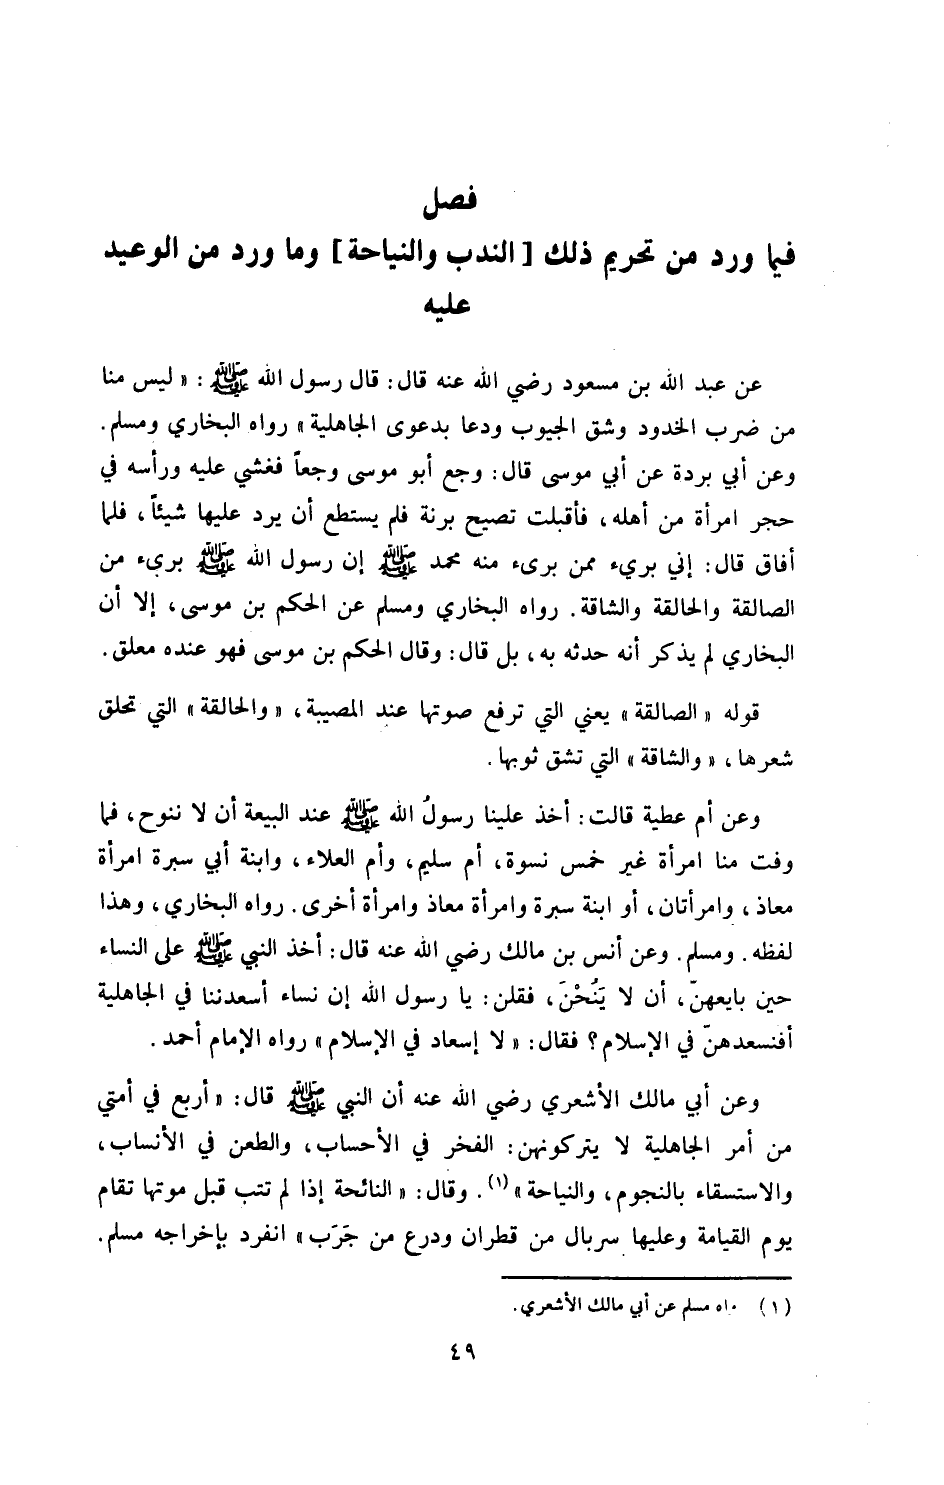 فصل
فيما ورد من تحريم ذلك [ الندب والنياحة ] وما ورد من الوعيد
عليه
عن عبد الله بن مسعود رضي الله عنه قال : قال رسول الله ﷺ : « ليس منا
من ضرب الخدود وشق الجيوب ودعا بدعوى الجاهلية » رواه البخاري ومسلم .
وعن أبي بردة عن أبي موسى قال : وجع أبو موسى وجعاً فغشي عليه ورأسه في
حجر امرأة من أهله ، فأقبلت تصيح برنة فلم يستطع أن يرد عليها شيئاً ، فلما
أفاق قال : إني بريء ممن برىء منه محمد ﷺ إن رسول الله ﷺ برىء من
الصالقة والحالقة والشاقة . رواه البخاري ومسلم عن الحكم بن موسى ، إلا أن
البخاري لم يذكر أنه حدثه به ، بل قال : وقال الحكم بن موسى فهو عنده معلق .
قوله « الصالقة » يعني التي ترفع صوتها عند المصيبة ، « والحالقة » التي تحلق
شعرها ، « والشاقة » التي تشق ثوبها .
وعن أم عطية قالت : أخذ علينا رسولُ الله ﷺ عند البيعة أن لا ننوح ، فما
وفت منا امرأة غير خمس نسوة ، أم سليم ، وأم العلاء ، وابنة أبي سبرة امرأة
معاذ ، وامرأتان ، أو ابنة سبرة وامرأة معاذ وامرأة أخرى . رواه البخاري ، وهذا
لفظه . ومسلم . وعن أنس بن مالك رضي الله عنه قال : أخذ النبي ﷺ على النساء
حين بايعهنّ ، أن لا يَنُحْنَ ، فقلن : يا رسول الله إن نساء أسعدننا في الجاهلية
أفنسعدهنّ في الإسلام ؟ فقال : « لا إسعاد في الإسلام » رواه الإمام أحمد .
وعن أبي مالك الأشعري رضي الله عنه أن النبي ﷺ قال : « أربع في أمتي
من أمر الجاهلية لا يتركونهن : الفخر في الأحساب ، والطعن في الأنساب ،
والاستسقاء بالنجوم ، والنياحة » (١) . وقال : « النائحة إذا لم تتب قبل موتها تقام
يوم القيامة وعليها سربال من قطران ودرع من جَرَب » انفرد بإخراجه مسلم .
(١) مسلم عن أبي مالك الأشعري .
٤٩